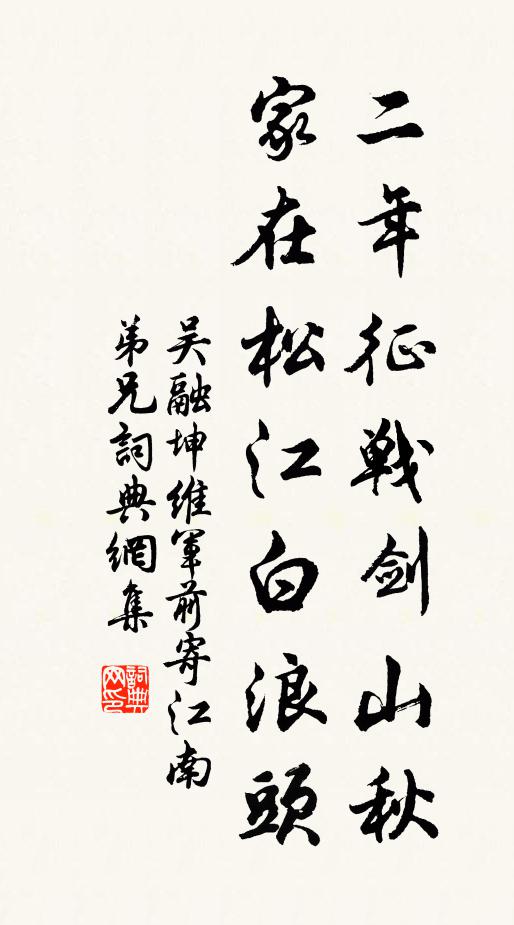 二年征戰剑山秋
家在松江白浪頭
吴融坤维軍前寄江南
弟兄詞典網集
詞典網印